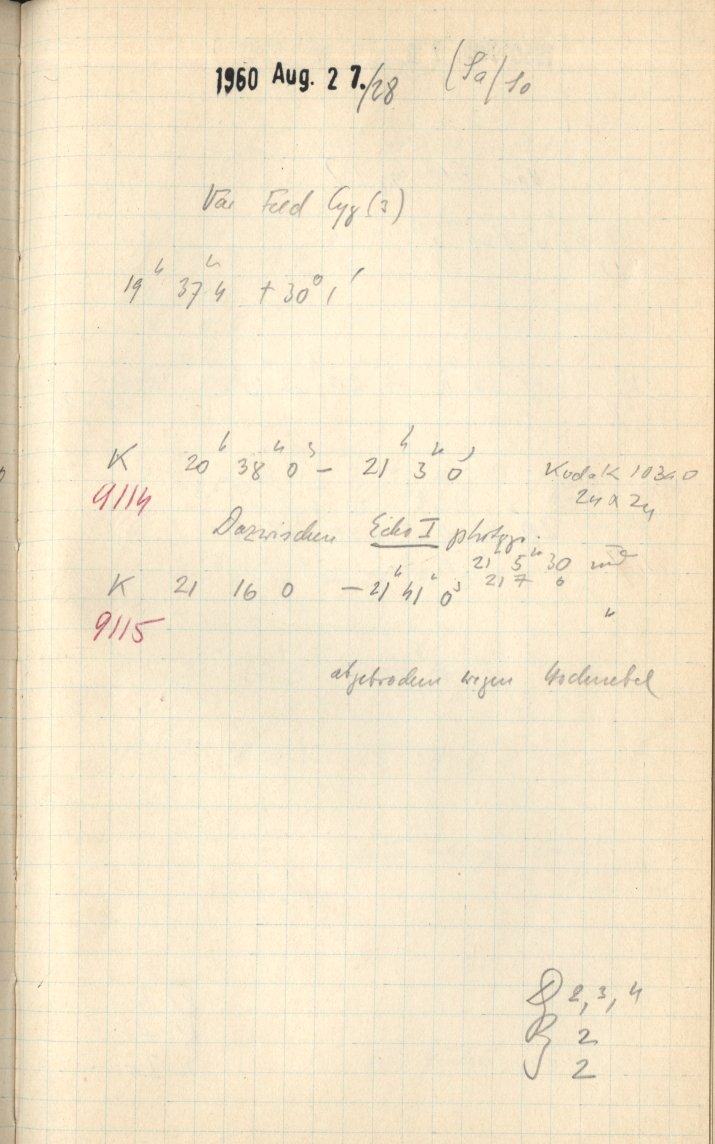 1960 Aug. 27./28 (Sa)/So
Var Feld Cyg (3)
19h 37m4 +30° 1'
K 20h 38m 0s – 21h 3m 0s Kodak 103aO
9114 24 x 24
Dazwischen Echo I photogr.
21h 5m 30 und
21 7 0
K 21 16 0 – 21h 41m 0s "
9115
abgebrochen wegen Hochnebel
2, 3, 4
2
2